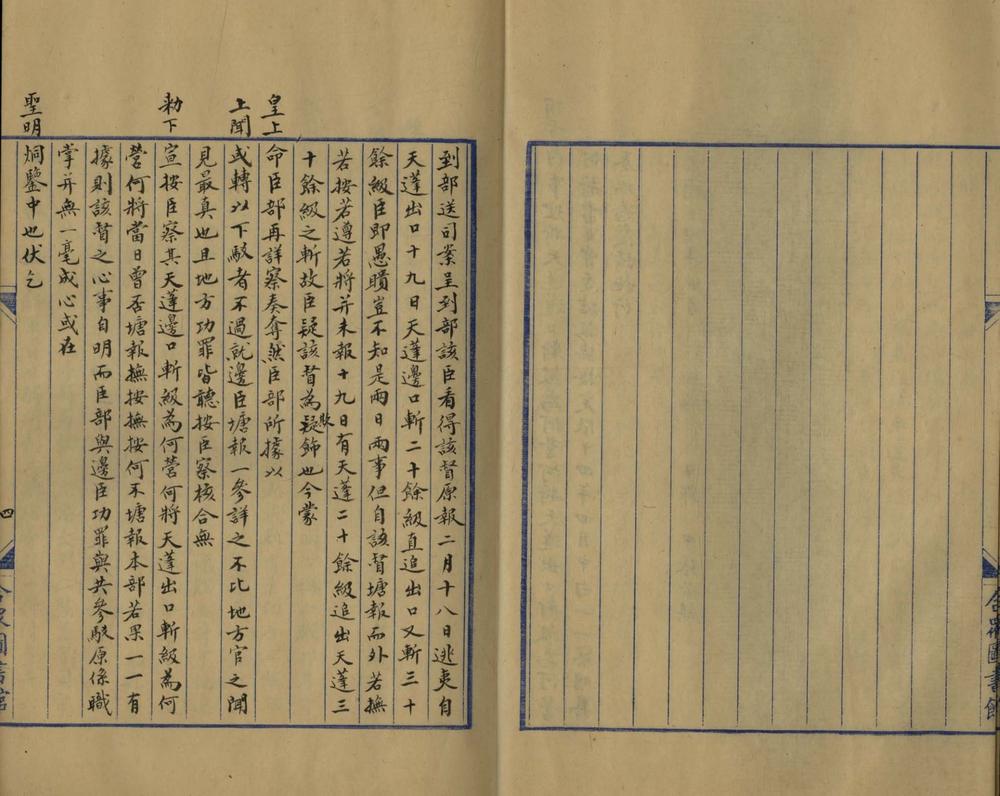 到部送司案呈到部該臣看得該督原報二月十八日逃夷自
天蓬出口十九日天蓬邊口斬二十餘級直追出口又斬三十
餘級臣即愚瞶豈不知是兩日兩事但自該督塘報而外若撫
若按若遵若將并未報十九日有天蓬二十餘級追出天蓬三
十餘級之斬故臣疑該督為疑飾也今蒙
皇上
命臣部再詳察奏奪然臣部所據以
上聞或轉以下駁者不過就邊臣塘報一參詳之不比地方官之聞
見最真也且地方功罪皆聽按臣察核合無
勅下
宣按臣察其天蓬邊口斬級為何營何將天蓬出口斬級為何
營何將當日曾否塘報撫按撫按何不塘報本部若果一一有
據則該督之心事自明而臣部與邊臣功罪與共參駁原係職
掌并無一毫成心或在
聖明
炯鑒中也伏乞
四
合眾圖書館
合眾圖書館